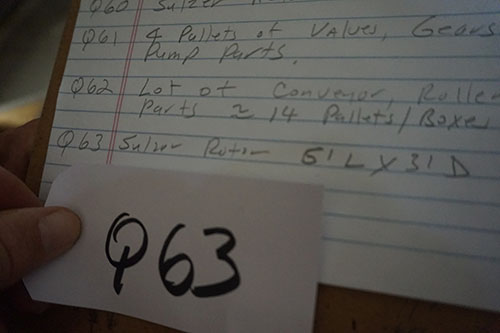 Q60 Sulzer
Q61 4 Pallets of Values, Gears
Pump Parts.
Q62 Lot of Conveyor, Roller
Parts ≈ 14 Pallets/Boxes
Q63 Sulzer Rotor 51"L X 31"D
Q63